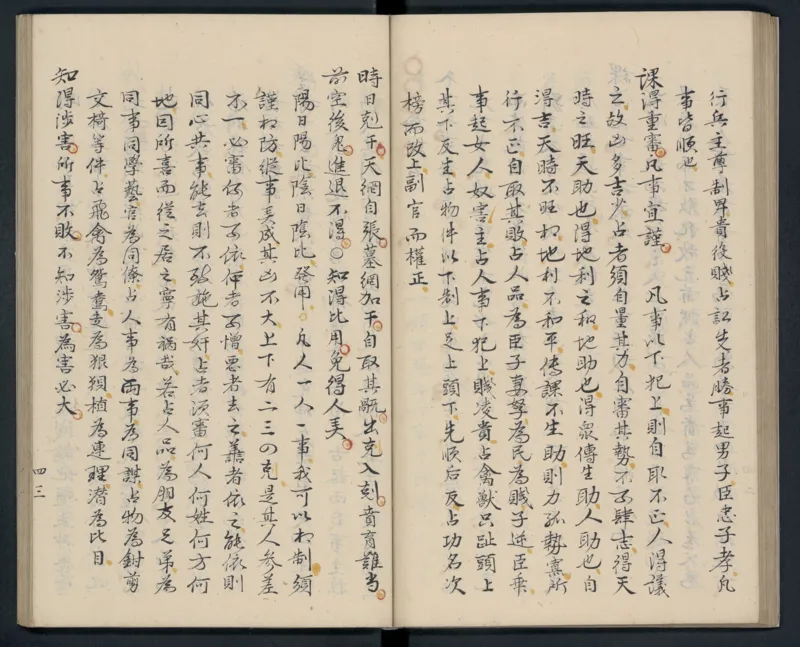 行兵主尊制卑貴役賤占訟先者勝事起男子臣忠子孝凡
事皆順也
課得重審凡事宜謹　凡事以下犯上則自取不正人得議
之故凶多吉少占者須自量其力自審其勢不可肆志得天
時之旺天助也得地利之和地助也得眾傳生助人助也自
得吉天時不旺相地利不和平傳課不生助則力孤勢寡所
行不正自取其敗占人品為臣子妻孥為民為賤子逆臣乗
事起女人奴害主占人事下犯上賤凌貴占禽獸只趾頭上
其下反生占物件以下制上足上頭下先順后反占功名次
榜而改上副官而權正
時日剋干天網自張墓網加干自取其亂出克入刻賁育難当
前空後鬼進退不得○知得比用免得人美
陽日陽比陰日陰比發用○凡人一人一事我可以相制須
謹相防縱事美成其凶不大上下有二三の克是其人参差
不一必審何者可依何者可憎悪者去之善者依之能依則
同心共事能去則不致施其奸占者須審何人何姓何方何
地因所喜而從之居之寧有禍哉若占人品為朋友兄弟為
同事同學藝官為同僚占人事為両事為同謀占物為鉗剪
文椅等件占飛禽為鴛鴦走為狼狽植為連理潛為比目
知得涉害所事不敗不知涉害為害必大
四三